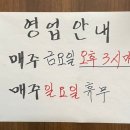 영업안내
매주 금요일 오후 3시
매주 일요일 휴무